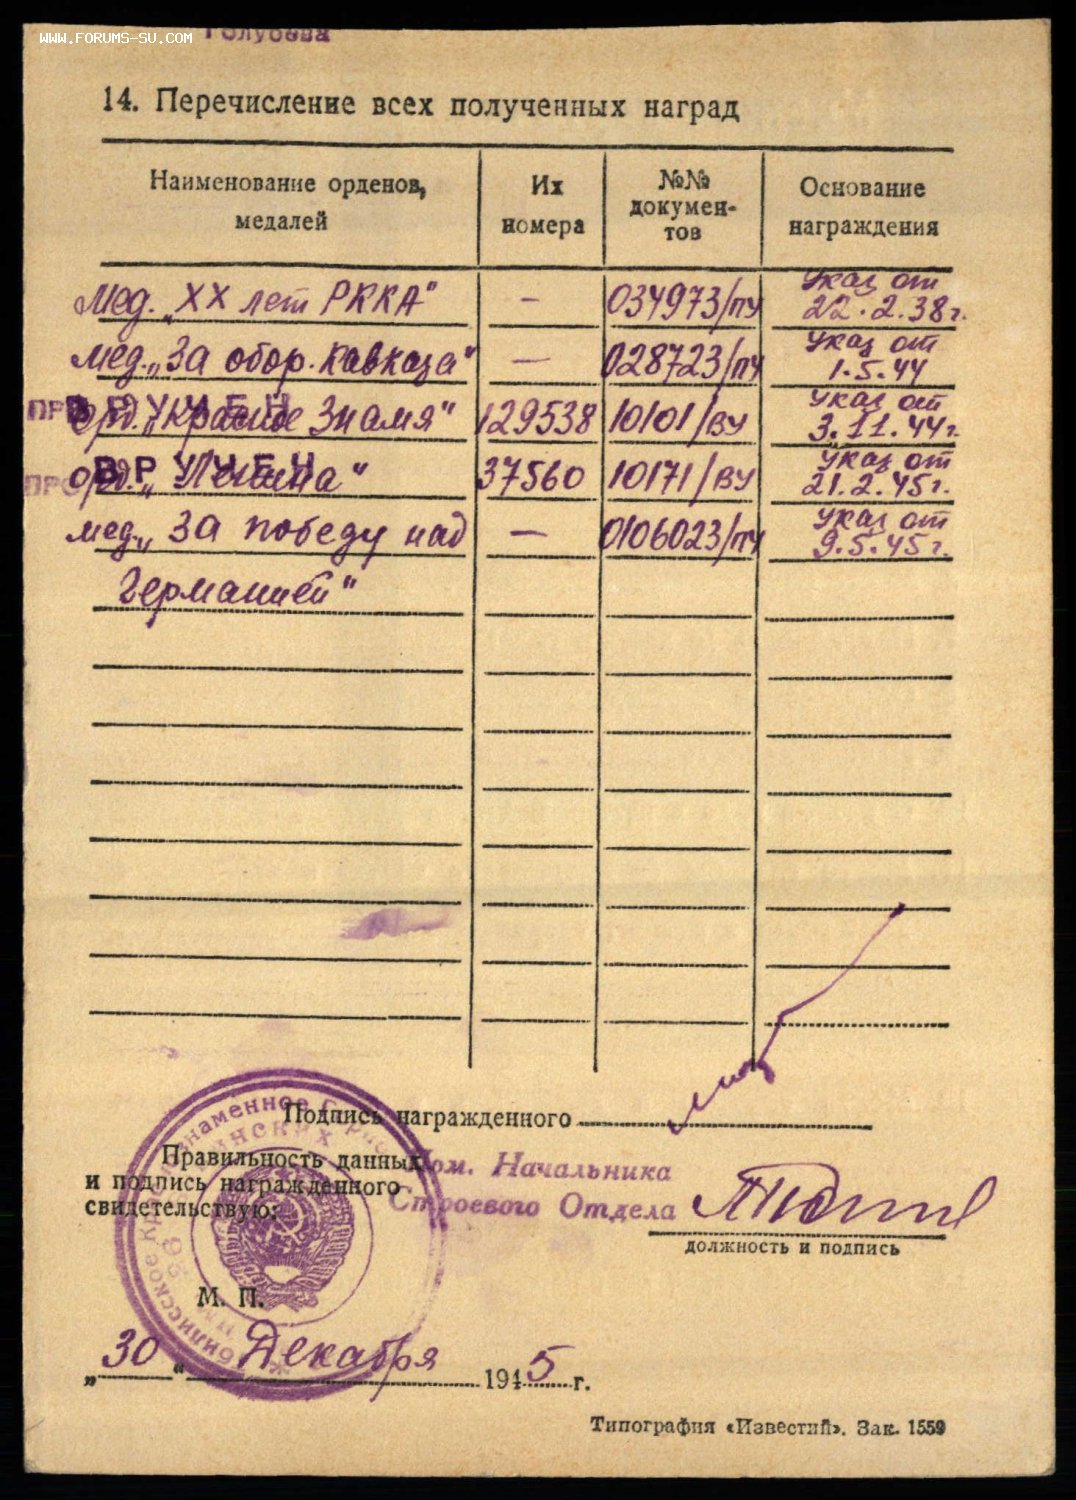 WWW.FORUMS-SU.COM
Голубева
14. Перечисление всех полученных наград
Наименование орденов, медалей
Их номера
№№ докумен-тов
Основание награждения
Мед. „XX лет РККА" — 034973/пу Указ от 22.2.38г.
мед. „За обор. Кавказа" — 028723/пу Указ от 1.5.44
орд. „Красное Знамя" 129538 10101/ву Указ от 3.11.44г.
ВРУЧЕН
орд. „Ленина" 37560 10171/ву Указ от 21.2.45г.
ВРУЧЕН
мед. „За победу над — 0106023/пу Указ от 9.5.45г.
Германией"
Подпись награжденного
Правильность данных
и подпись награжденного
свидетельствую:
Пом. Начальника
Строевого Отдела
должность и подпись
М. П.
„30" Декабря 1945 г.
Типография «Известий». Зак. 1559